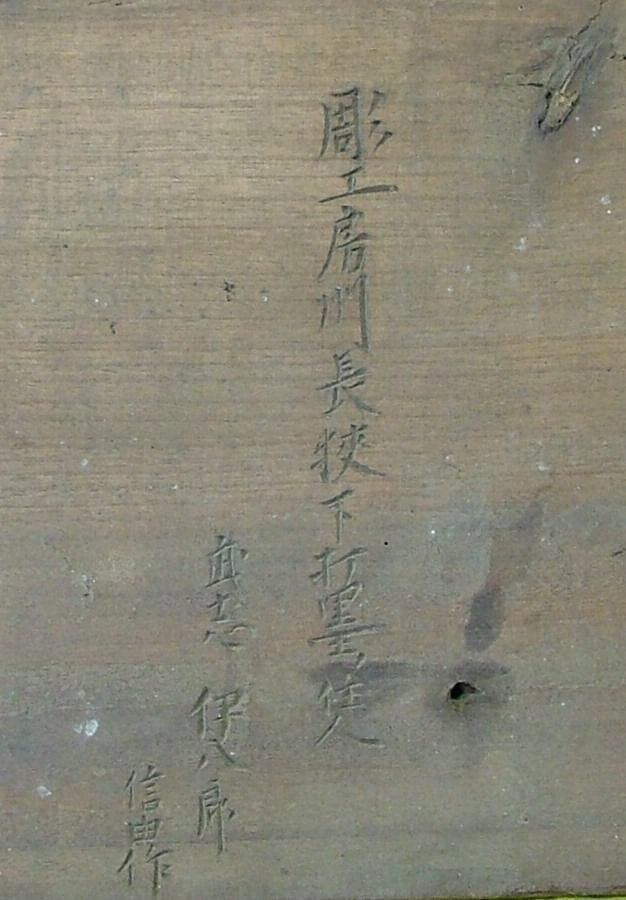 彫工房州長狹下打墨住人
武志 伊八郎
信由作